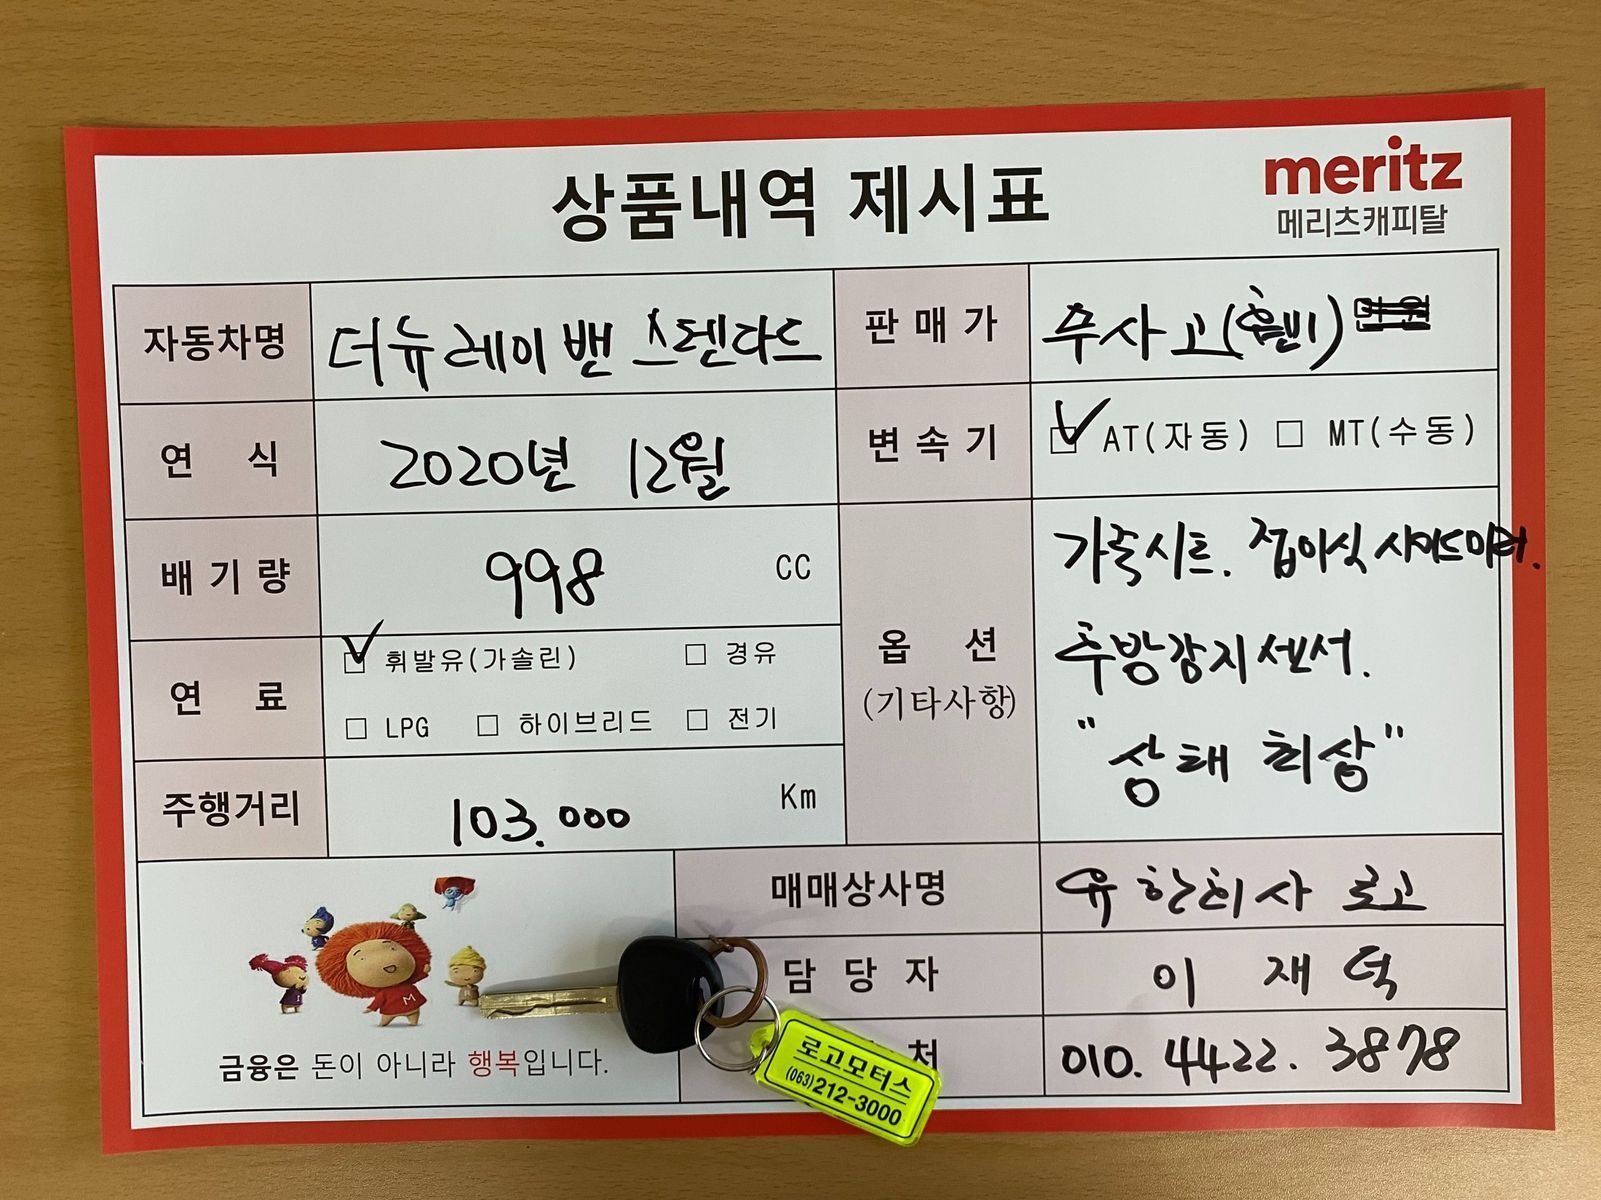 상품내역 제시표
meritz
메리츠캐피탈
자동차명 더뉴레이밴 스텐다드
판매가 무사고(흰) 만원
연식 2020년 12월
변속기 AT(자동) □ MT(수동)
배기량 998 CC
연료 휘발유(가솔린) □ 경유
□ LPG □ 하이브리드 □ 전기
주행거리 103.000 Km
옵션
(기타사항)
가죽시트. 접이식 사이드미러.
후방감지센서.
"상태 최상"
매매상사명 유한회사 로고
담당자 이재덕
처 010.4422.3878
금융은 돈이 아니라 행복입니다.
로고모터스
(063)212-3000